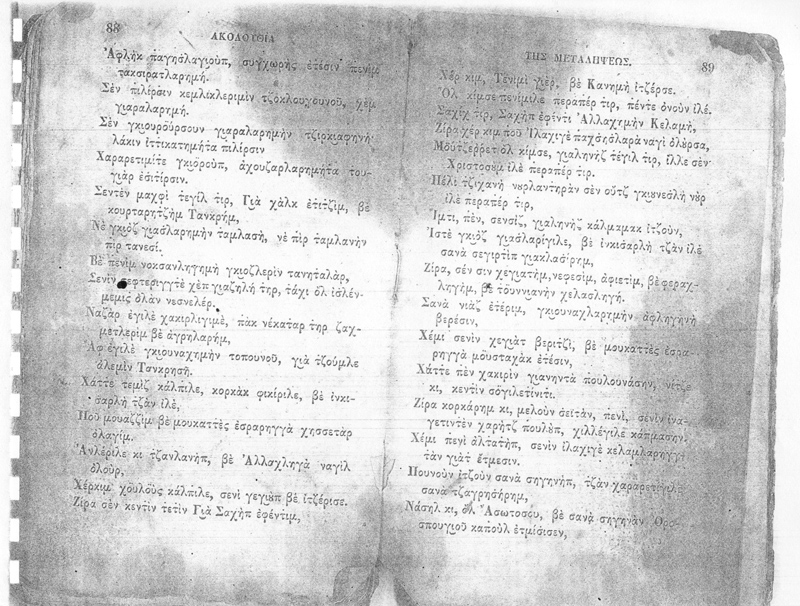 88
ΑΚΟΛΟΥΘΙΑ
Ἀφλὴκ παγησλαγιοὺπ, συγχωρῆς ἐτέσιν πενὶμ
τακσιρατλαρημή.
Σὲν πιλίρσιν κεμλικλεριμὶν τζοκλουγουνοῦ, χὲμ
γιαραλαρημή.
Σὲν γκιουροῦρσουν γιαραλαρημὴν τζιρκιαφηνὴ·
λάκιν ἐττικατημήτα πιλίρσιν
Χαραρετιμίτε γκιοροὺπ, ἀχουζαρλαρημήτα του-
γιὰρ ἐσιτίρσιν.
Σεντὲν μαχφὶ τεγὶλ τὶρ, Γιὰ χάλκ ἐτιτζὶμ, βὲ
κουρταρητζὴμ Τανκρὴμ,
Νὲ γκιὸζ γιασλαρημὴν ταμλασὴ, νὲ πὶρ ταμλανὴν
πὶρ τανεσί.
Βὲ πενὶμ νοκσανληγημὴ γκιοζλερὶν τανηταλὰρ,
Σενὶν τεφτεριγγτὲ χὲπ γιαζηλὴ τὴρ, τάχι ὀλ ἰσλέν-
μεμὶς ὀλὰν νεσνελέρ.
Ναζὰρ ἐγιλὲ χακιρλιγιμὲ, πὰκ νέκαταρ τὴρ ζαχ-
μετλερὶμ βὲ ἀγρηλαρὴμ,
Ἀφ ἐγιλὲ γκιουναχημὴν τοπουνοῦ, γιὰ τζούμλε
ἀλεμὶν Τανκρησή.
Χάττε τεμὶζ κάλπιλε, κορκὰκ φικίριλε, βὲ ἐνκι-
σαρλὴ τζὰν ἰλὲ,
Ποῦ μουαζζὶμ βὲ μουκαττὲς ἐσραρηγγὰ χησσετὰρ
ὀλαγίμ.
Ἀνλέριλε κι τζανλανὴπ, βὲ Ἀλλαχληγὰ ναγὶλ
ὀλοῦρ,
Χέρκιμ χουλοὺς κάλπιλε, σενὶ γεγιοὺπ βὲ ἰτζέρισε.
Ζίρα σὲν κεντὶν τετὶν Γιὰ Σαχὴπ ἐφέντιμ,
ΤΗΣ ΜΕΤΑΛΗΨΕΩΣ.
89
Χὲρ κὶμ, Τένιμι γιὲρ, βὲ Κανημὴ ἰτζέρσε.
Ὀλ κίμσε πενίμιλε περαπὲρ τὶρ, πέντε ὀνοὺν ἰλέ.
Σαχὶχ τὶρ, Σαχὴπ ἐφέντι Ἀλλαχημὴν Κελαμὴ,
Ζίρα χὲρ κὶμ ποῦ Ἰλαχιγὲ παχσησλαρὰ ναγὶ ὀλοῦρσα,
Μοῦτζερρετ ὂλ κίμσε, γιαληνὴζ τεγὶλ τὶρ, ἴλλε σὲν
Χριστοσοὺμ ἰλὲ περαπὲρ τίρ.
Πέλι τζιχανὴ νουρλαντηρὰν σὲν οὔτζ γκιουνεσλὴ νοὺρ
ἰλὲ περαπὲρ τὶρ,
Ἴμτι, πὲν, σενσὶζ, γιαληνὴζ κάλμαμακ ἰτζοὺν,
Ἰστὲ γκιὸζ γιασλαρίγιλε, βὲ ἐνκισαρλὴ τζὰν ἰλὲ
σανὰ σεγιρτὶπ γιακλασίρημ,
Ζίρα, σὲν σὶν χεγιατὴμ, νεφεσὶμ, ἀφιετὶμ, βὲ φεραχ-
ληγὴμ, βὲ τουννιανὴν χελασληγή.
Σανὰ νιὰζ ἐτέριμ, γκιουναχλαρημὴν ἀφληγηνὴ
βερέσιν,
Χέμι σενὶν χεγιὰτ βεριτζὶ, βὲ μουκαττὲς ἐσρα-
ρηγγὰ μουσταχὰκ ἐτέσιν,
Χάττε πὲν χακίριν γιανηντὰ πουλουνάσην, νίτζε
κι, κεντὶν σόγιλετίνιτι.
Ζίρα κορκάρημ κι, μελοὺν σεϊτὰν, πενὶ, σενὶν ἰνα-
γετιντὲν χαρὴτζ πουλοὺπ, χιλλέγιλε κάπμασην.
Χέμι πενὶ ἀλτατὴπ, σενὶν ἰλαχιγὲ κελαμλαρηγγ
τὰν γιὰτ ἔτμεσιν.
Πουνοὺν ἰτζοὺν σανὰ σηγηνὴπ, τζὰν χαραρετίγιλε
σανὰ τζαγρησήρημ,
Νάσηλ κι, ὀλ Ἀσωτοσου, βὲ σανὰ σηγηνὰν Ὀρο-
σπουγιοῦ καποὺλ ἐτμίσισεν,